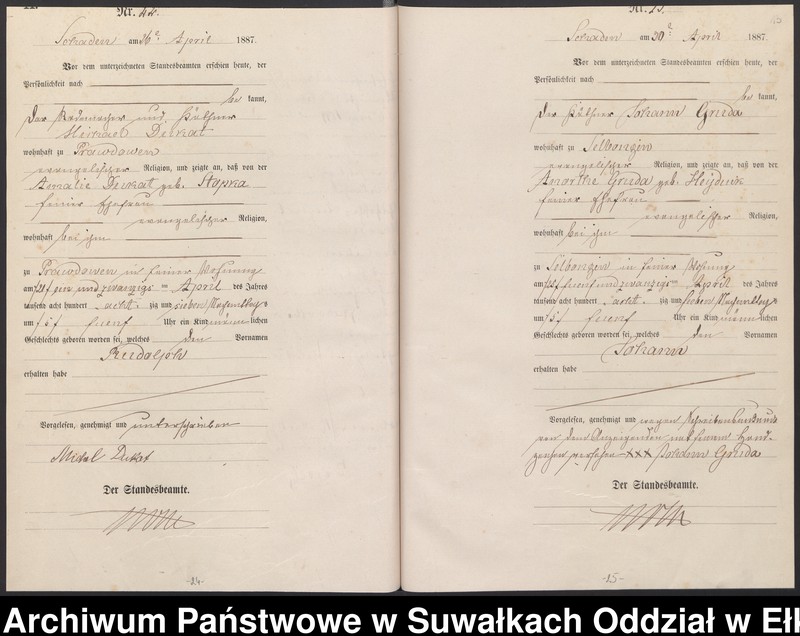 Nr. 44.
am 26ᵗ April 1887.
Vor dem unterzeichneten Standesbeamten erschien heute, der
Persönlichkeit nach
be kannt,
der und Käthner
wohnhaft zu Prawdowen
evangelischer Religion, und zeigte an, daß von der
Amalie geb. Stopka
seiner Ehefrau
evangelischer Religion,
wohnhaft bei ihm
zu Prawdowen in seiner Wohnung
am ein und zwanzigs ten April des Jahres
tausend acht hundert acht zig und sieben Nachmittags
um fuenf Uhr ein Kind männ lichen
Geschlechts geboren worden sei, welches den Vornamen
Rudolph
erhalten habe
Vorgelesen, genehmigt und unterschrieben
Der Standesbeamte.
-24-
am 30ᵗ April 1887.
Vor dem unterzeichneten Standesbeamten erschien heute, der
Persönlichkeit nach
be kannt,
der Käthner Johann Gruda
wohnhaft zu
evangelischer Religion, und zeigte an, daß von der
Gruda geb.
seiner Ehefrau
evangelischer Religion,
wohnhaft bei ihm
zu in seiner Wohnung
am fuenf und zwanzigs ten April des Jahres
tausend acht hundert acht zig und sieben Nachmittags
um fuenf Uhr ein Kind männ lichen
Geschlechts geboren worden sei, welches den Vornamen
Johann
erhalten habe
Vorgelesen, genehmigt und wegen Schreibensunkunde
von dem Anzeigenden mit seinem Hand-
zeichen versehen XXX Johann Gruda
Der Standesbeamte.
-25-
Archiwum Państwowe w Suwałkach Oddział w Ełk